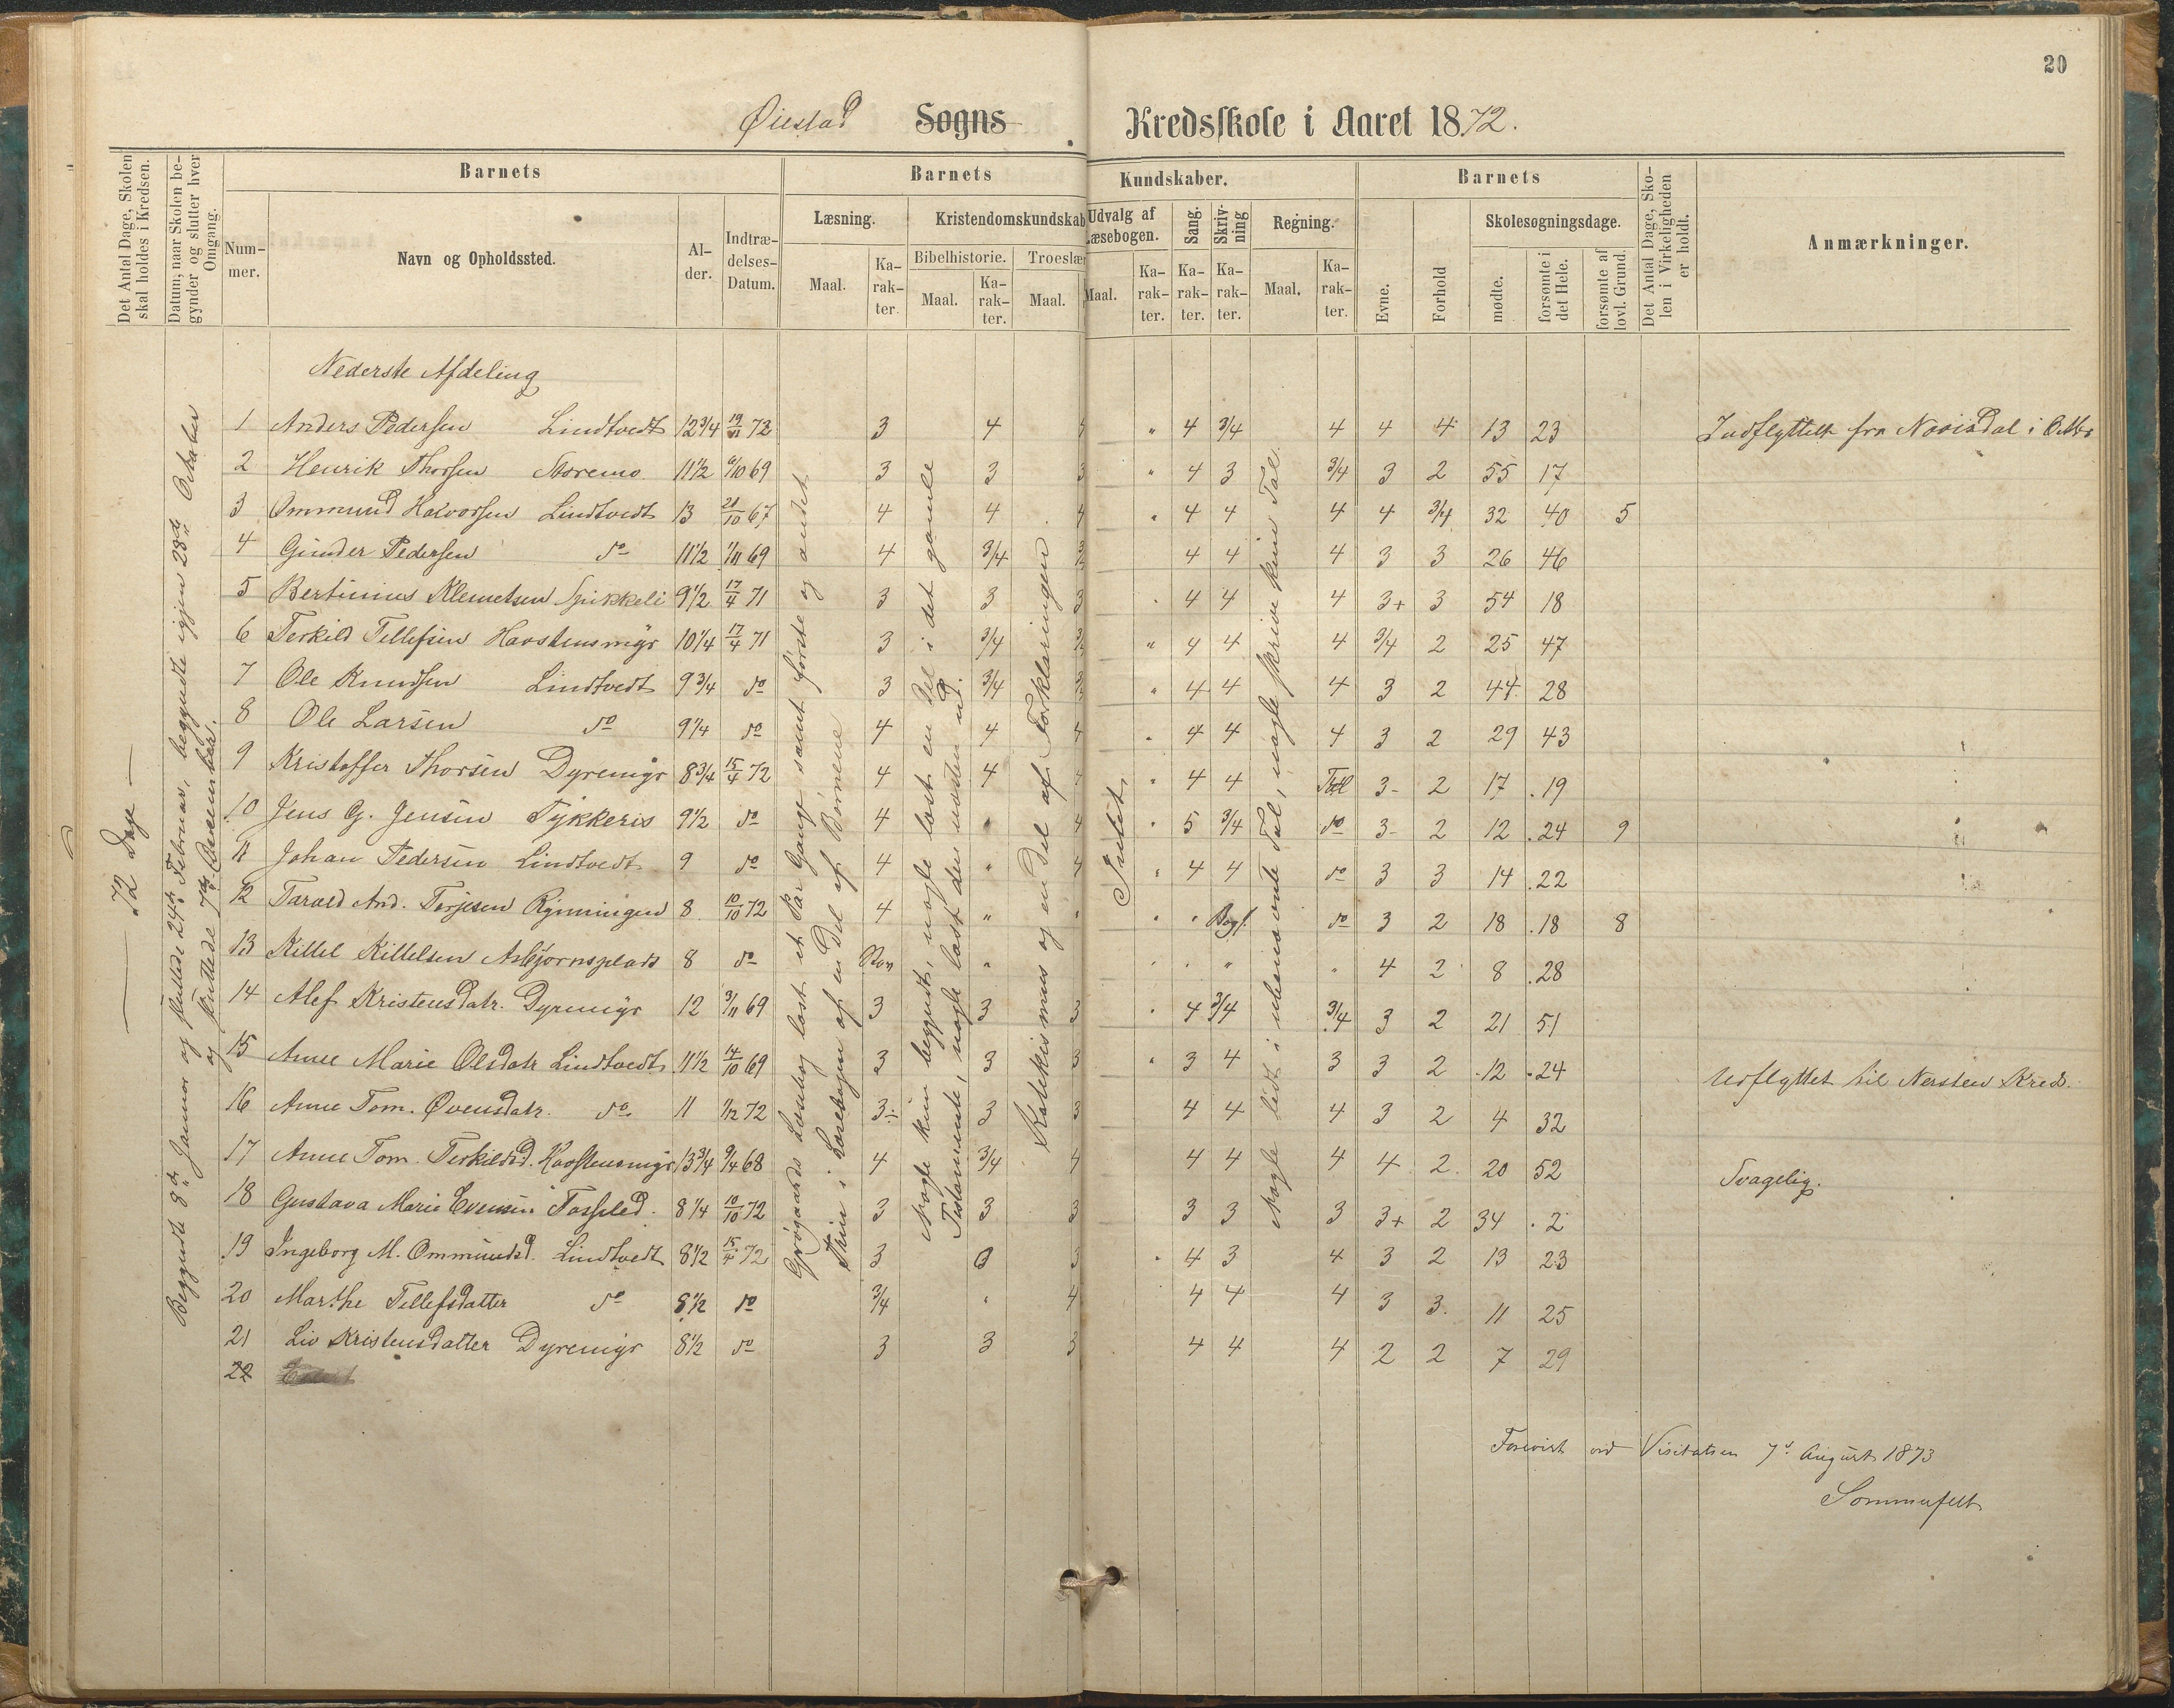 20
Øiestad Sogns Kredsskole i Aaret 1872.
Det Antal Dage, Skolen skal holdes i Kredsen.
Datum, naar Skolen begynder og slutter hver Omgang.
Barnets
Nummer.
Navn og Opholdssted.
Alder.
Indtrædelses-Datum.
Barnets Kundskaber.
Læsning.
Maal.
Karakter.
Kristendomskundskab
Bibelhistorie.
Maal.
Karakter.
Troeslær
Maal.
Udvalg af Læsebogen.
Maal.
Karakter.
Sang.
Karakter.
Skrivning
Karakter.
Regning.
Maal.
Karakter.
Barnets
Evne.
Forhold
Skolesøgningsdage.
mødte.
forsømte i det Hele.
forsømte af lovl. Grund.
Det Antal Dage, Skolen i Virkeligheden er holdt.
Anmærkninger.
72 Dage
Begyndte 8de Januar og sluttede 24de Februar, begyndte igjen 28de Oktober
og sluttede 7de December.
Grøgaards Læsebog læst et Par Gange samt første og andet
Trin i Læsebogen af en Del af Børnene
Nogle kun begyndt, nogle læst en Del i det gamle
Testamente, nogle læst den næsten ud.
Katekismus og en Del af Forklaringen
Intet
Nogle lidt i ubenævnte Tal, nogle skrive kun Tal.
Nederste Afdeling
1 Anders Pedersen Lindtvedt 12 3/4 19/11 72 3 4 4 " 4 3/4 4 4 4 13 23 Indflyttet fra
2 Henrik Thorsen Moremo 11 1/2 6/10 69 3 3 3 " 4 3 3/4 3 2 55 17
3 Ommund Halvorsen Lindtvedt 13 21/10 67 4 4 4 " 4 4 4 4 3/4 32 40 5
4 Gunder Pedersen do 11 1/2 1/11 69 4 3/4 3/4 4 4 4 3 3 26 46
5 Bertinius Klemetsen Spikkeli 9 1/2 17/4 71 3 3 3 " 4 4 4 3+ 3 54 18
6 Terkild Tellefsen Havstensmyr 10 1/4 17/4 71 3 3/4 3/4 " 4 4 4 3/4 2 25 47
7 Ole Knudsen Lindtvedt 9 3/4 do 3 3/4 3/4 " 4 4 4 3 2 44 28
8 Ole Larsen do 9 1/4 do 4 4 4 " 4 4 4 3 2 29 43
9 Kristoffer Thorsen Dyremyr 8 3/4 15/4 72 4 4 4 " 4 4 Tal 3- 2 17 19
10 Jens G. Jensen Tykkeris 9 1/2 do 4 " 4 " 5 3/4 do 3- 2 12 24 9
11 Johan Pedersen Lindtvedt 9 do 4 " 4 " 4 4 do 3 3 14 22
12 Tarald And. Terjesen Rynningen 8 10/10 72 4 " " " " Bogst. do 3 2 18 18 8
13 Kittel Kittelsen Asbjørnsplads 8 do " " " " " 4 2 8 28
14 Alef Kristensdatr. Dyremyr 12 3/11 69 3 3 3 " 4 3/4 3/4 3 2 21 51
15 Anne Marie Olsdatr Lindtvedt 11 1/2 14/10 69 3 3 3 " 3 4 3 3 2 12 24 Udflyttet til Nersten Kreds.
16 Anne Tom. Øvensdatr. do 11 1/12 72 3÷ 3 3 4 4 4 3 2 4 32
17 Anne Tom. Terkildsd. Havstensmyr 13 3/4 9/4 68 4 3/4 4 4 4 4 4 2 20 52 Svagelig.
18 Gustava Marie Evensen Fosseled 8 1/4 10/10 72 3 3 3 3 3 3 3+ 2 34 2
19 Ingeborg M. Ommundsd. Lindtvedt 8 1/2 15/4 72 3 3 3 " 4 3 4 3 2 13 23
20 Marthe Tellefsdatter do 8 1/2 do 3/4 " 4 4 4 4 3 3 11 25
21 Liv Kristensdatter Dyremyr 8 1/2 do 3 3 3 4 4 4 2 2 7 29
22
Forevist ved Visitatsen 7de August 1873
Sommerfelt